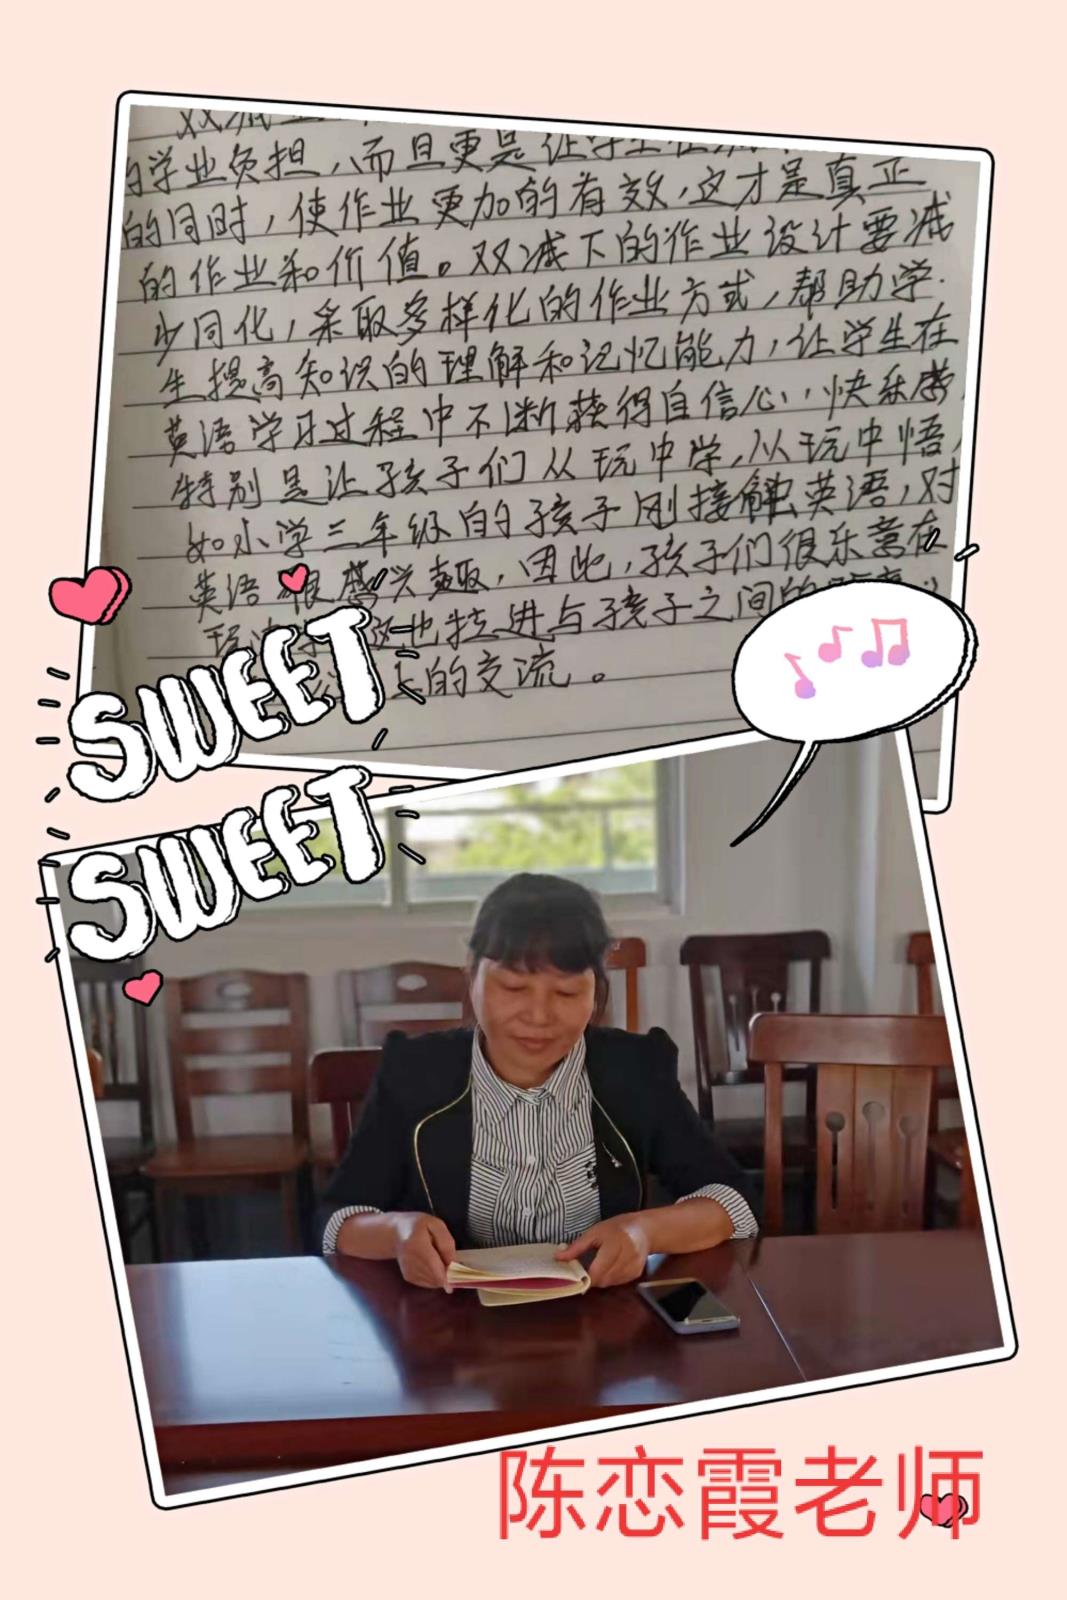 双减
的学业负担，而且更是让学生在
的同时，使作业更加的有效，这才是真正
的作业和价值。双减下的作业设计要减
少同化，采取多样化的作业方式，帮助学
生提高知识的理解和记忆能力，让学生在
英语学习过程中不断获得自信心，快乐学
特别是让孩子们从玩中学，从玩中悟，
如小学三年级的孩子刚接触英语，对
英语很感兴趣，因此，孩子们很乐意在
玩中学 也拉进与孩子之间的
上的交流。
SWEET
SWEET
陈恋霞老师